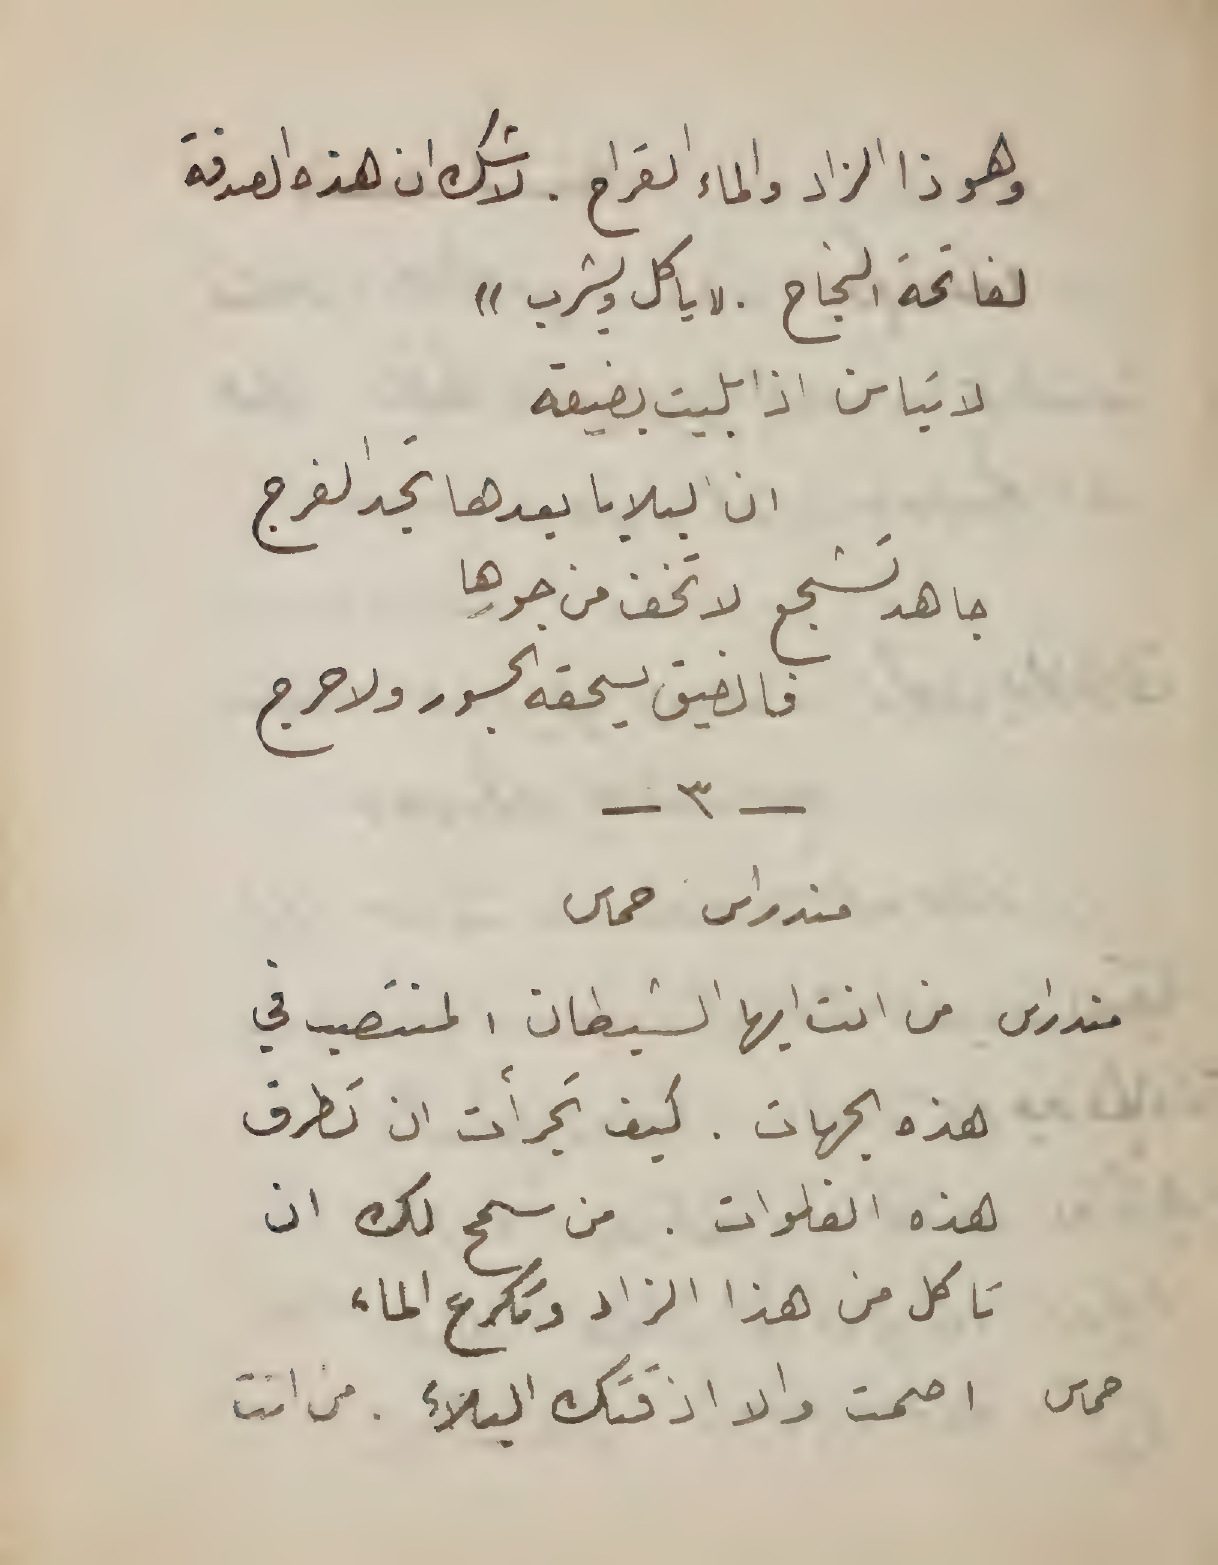 وهوذا الزاد والماء القراح . لاشك ان هذه الصدفة
لفاتحة النجاح . « ياكل ويشرب »
لا تيأسن اذا بليت بضيقة
ان البلايا بعدها تجد الفرج
جاهد تشجع لا تخف من جورها
فالضيق يسحقه الجسور ولا حرج
— ٣ —
مندراس حماس
مندراس من انت ايها الشيطان المنتصب في
هذه الجهات . كيف تجرأت ان تطرق
هذه الفلوات . من سمح لك ان
تاكل من هذا الزاد وتكرع الماء
حماس اصمت والا اذقتك البلاء . من انت